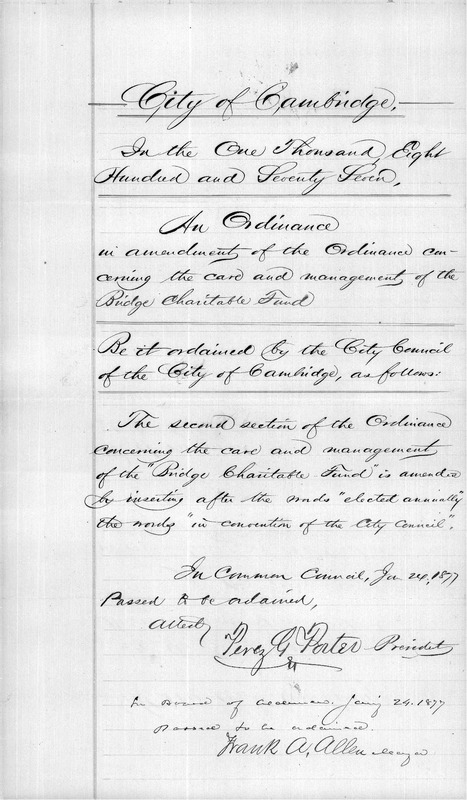 City of Cambridge.
In the One Thousand Eight
Hundred and Seventy Seven,
An Ordinance
in amendment of the Ordinance con-
cerning the care and management of the
Bridge Charitable Fund
Be it ordained by the City Council
of the City of Cambridge, as follows:
The second section of the Ordinance
concerning the care and management
of the "Bridge Charitable Fund" is amended
by inserting after the words "elected annually"
the words "in convention of the City Council".
In Common Council, Jan 24, 1877
Passed to be ordained,
Attest,
Perez G Porter President
In Board of Aldermen. Jan'y 24. 1877
Passed to be ordained.
Frank A. Allen Mayor